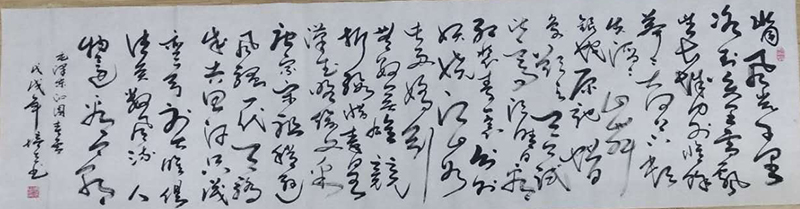 北国风光千里
冰封万里雪飘
望长城内外惟余
莽莽大河上下顿
失滔滔山舞
银蛇原驰蜡
象欲与天公试
比高须晴日看
红装素裹分外
妖娆江山如
此多娇引
无数英雄竞
折腰惜秦皇
汉武略输文采
唐宗宋祖稍逊
风骚一代天骄
成吉思汗只识
弯弓射大雕俱
往矣数风流人
物还看今朝
毛泽东沁园春雪
戊戌年书